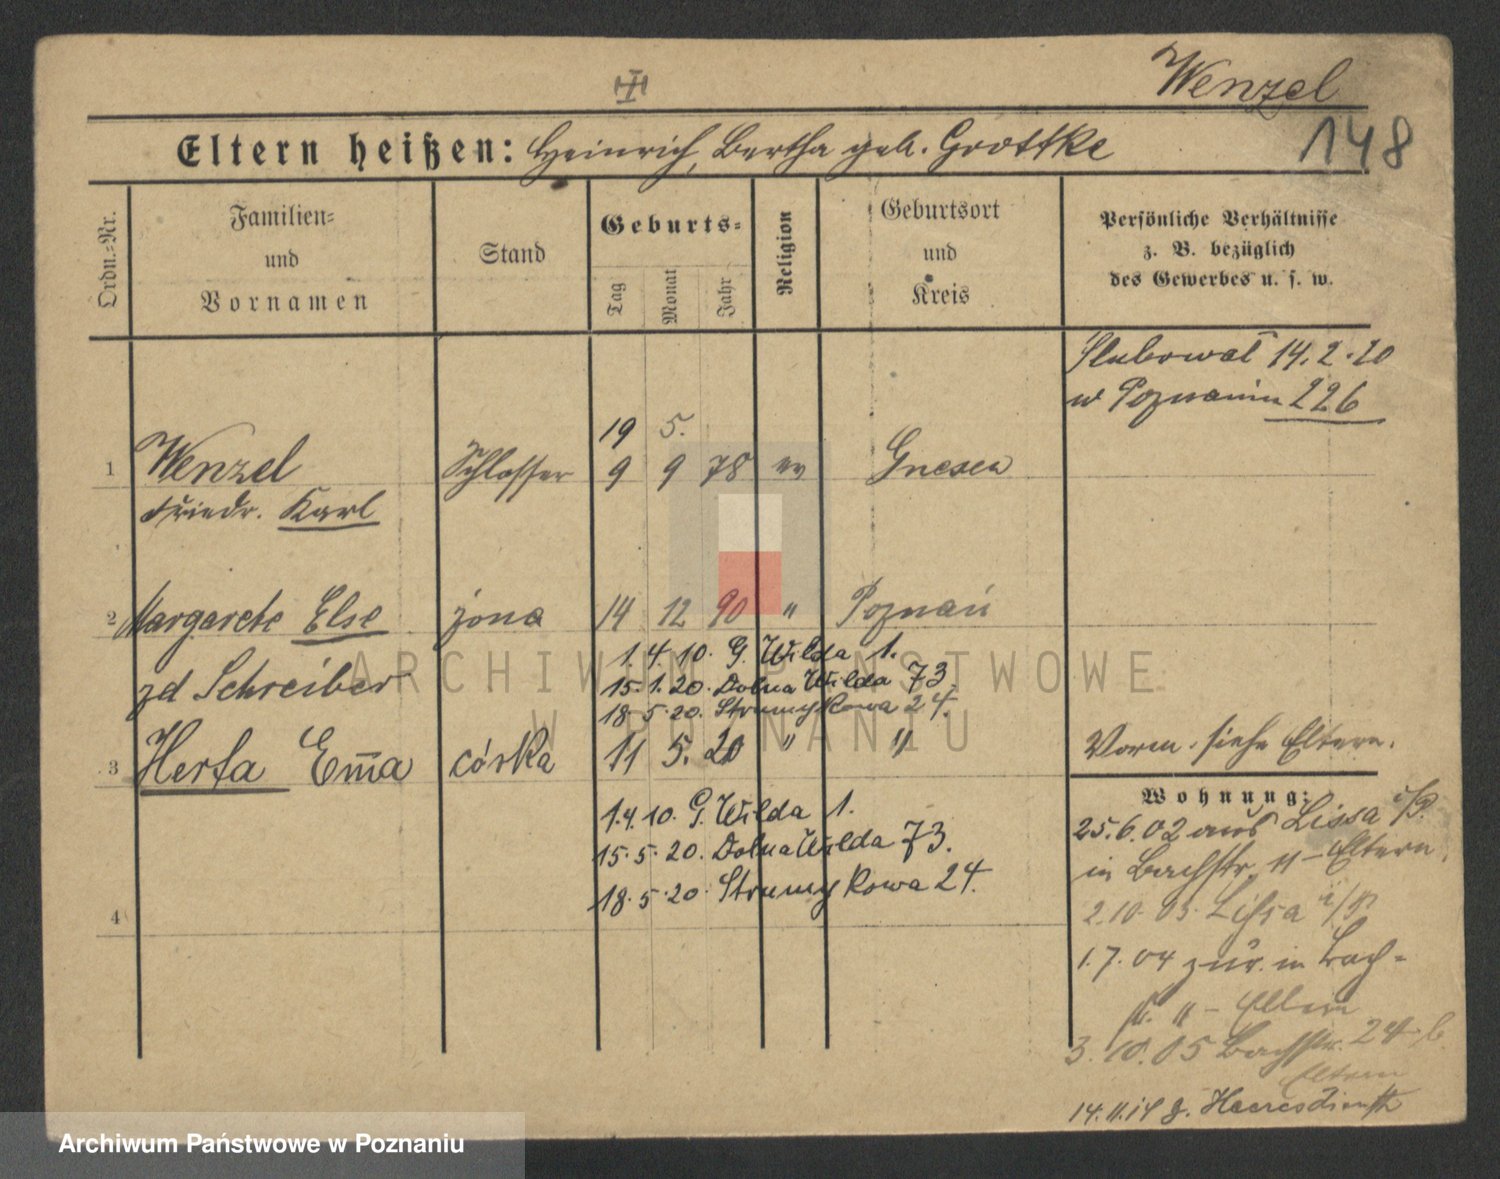 Wenzel
148
Eltern heißen: Heinrich, Bertha geb. Grottke
Ordn.-Nr.
Familien-
und
Vornamen
Stand
Geburts-
Tag
Monat
Jahr
Religion
Geburtsort
und
Kreis
Persönliche Verhältnisse
z. B. bezüglich
des Gewerbes u. s. w.
Slubował 14.2.20
w Poznaniu 226
19 5.
1 Wenzel Schlosser 9 9 78 ev Gnesen
Friedr. Karl
2 Margarete Else żona 14 12 90 " Poznań
1.4.10. G. Wilda 1.
zd Schreiber
15.1.20. Dolna Wilda 73
18.5.20. Strumykowa 24.
3 Herta Em̄a córka 11 5. 20 " "
Vorm. siehe Eltern.
Wohnung:
1.4.10. G. Wilda 1.
15.5.20. Dolna Wilda 73.
18.5.20. Strumykowa 24.
4
25.6.02 aus Lissa i/P.
in Bachstr. 11 - Eltern.
2.10.03. Lissa i/P
1.7.04 zur. in Bach-
str. 11 - Eltern
3.10.05 Bachstr. 24 b
Eltern
14.11.14 z. Heeresdienst
ARCHIWUM PAŃSTWOWE
W POZNANIU
Archiwum Państwowe w Poznaniu